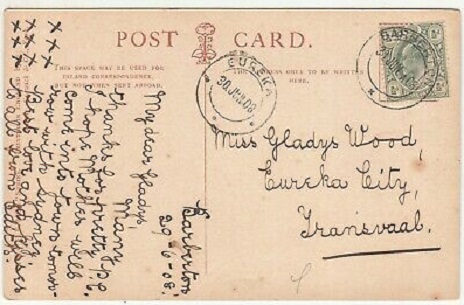 POST CARD.
THIS SPACE MAY BE USED FOR
INLAND CORRESPONDENCE,
BUT NOT WHEN SENT ABROAD.
THE ADDRESS ONLY TO BE WRITTEN
HERE.
EUREKA
30 JUN 08
BARBERTON
Barberton
29-6-08.
My dear Gladys,
Many
thanks for pretty P.P.C.
I hope Mother will
come into town tomor-
row with Sydney
Best love and kisses
to all from
x x x
x x x
x x x
Miss Gladys Wood,
Eureka City,
Transvaal.